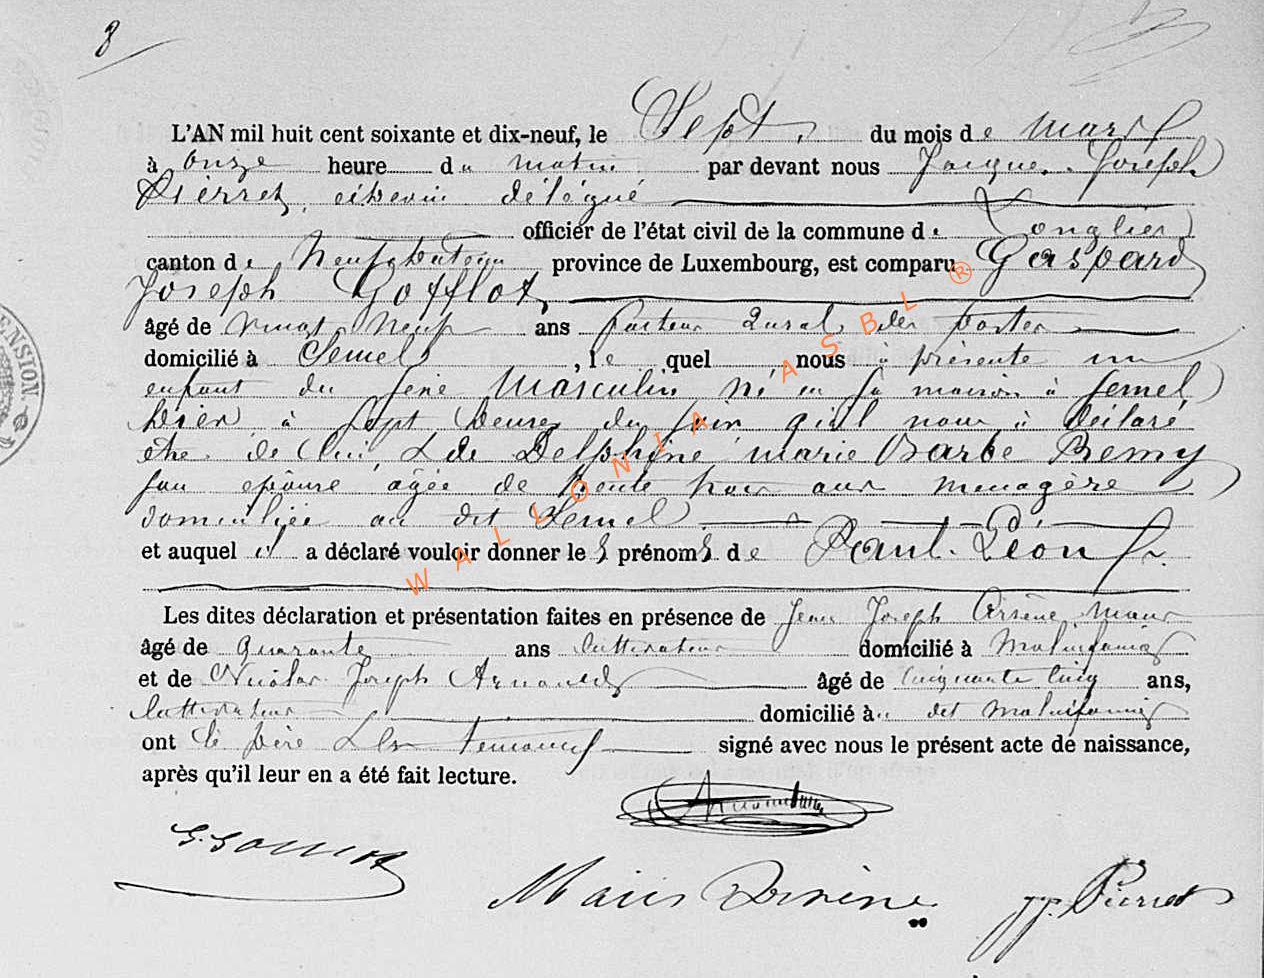 8
L'AN mil huit cent soixante et dix-neuf, le Sept du mois de mars
à onze heure du matin par devant nous Jacques Joseph
Pierret, echevin délégué
officier de l'état civil de la commune de Longlier
canton de Neufchateau province de Luxembourg, est comparu Gaspard
Joseph Gofflot,
âgé de vingt neuf ans facteur rural des postes
domicilié à Semel, le quel nous à présenté un
enfant du sexe masculin né en sa maison à Semel
hier à sept heures du soir qu'il nous à déclaré
être de lui, & de Delphine marie Barbe Remy
son épouse agée de trente trois ans menagère
domiciliée au dit Semel
et auquel il a déclaré vouloir donner les prénoms de Paul-Léon
Les dites déclaration et présentation faites en présence de Jean Joseph Arsène
âgé de Quarante ans cultivateur domicilié à Molinfaing
et de Nicolas Joseph âgé de cinquante cinq ans,
cultivateur domicilié à au dit Molinfaing
ont le père & les temoins signé avec nous le présent acte de naissance,
après qu'il leur en a été fait lecture.
JJ. Pierret
WALLONIA ASBL ®
ENSION.